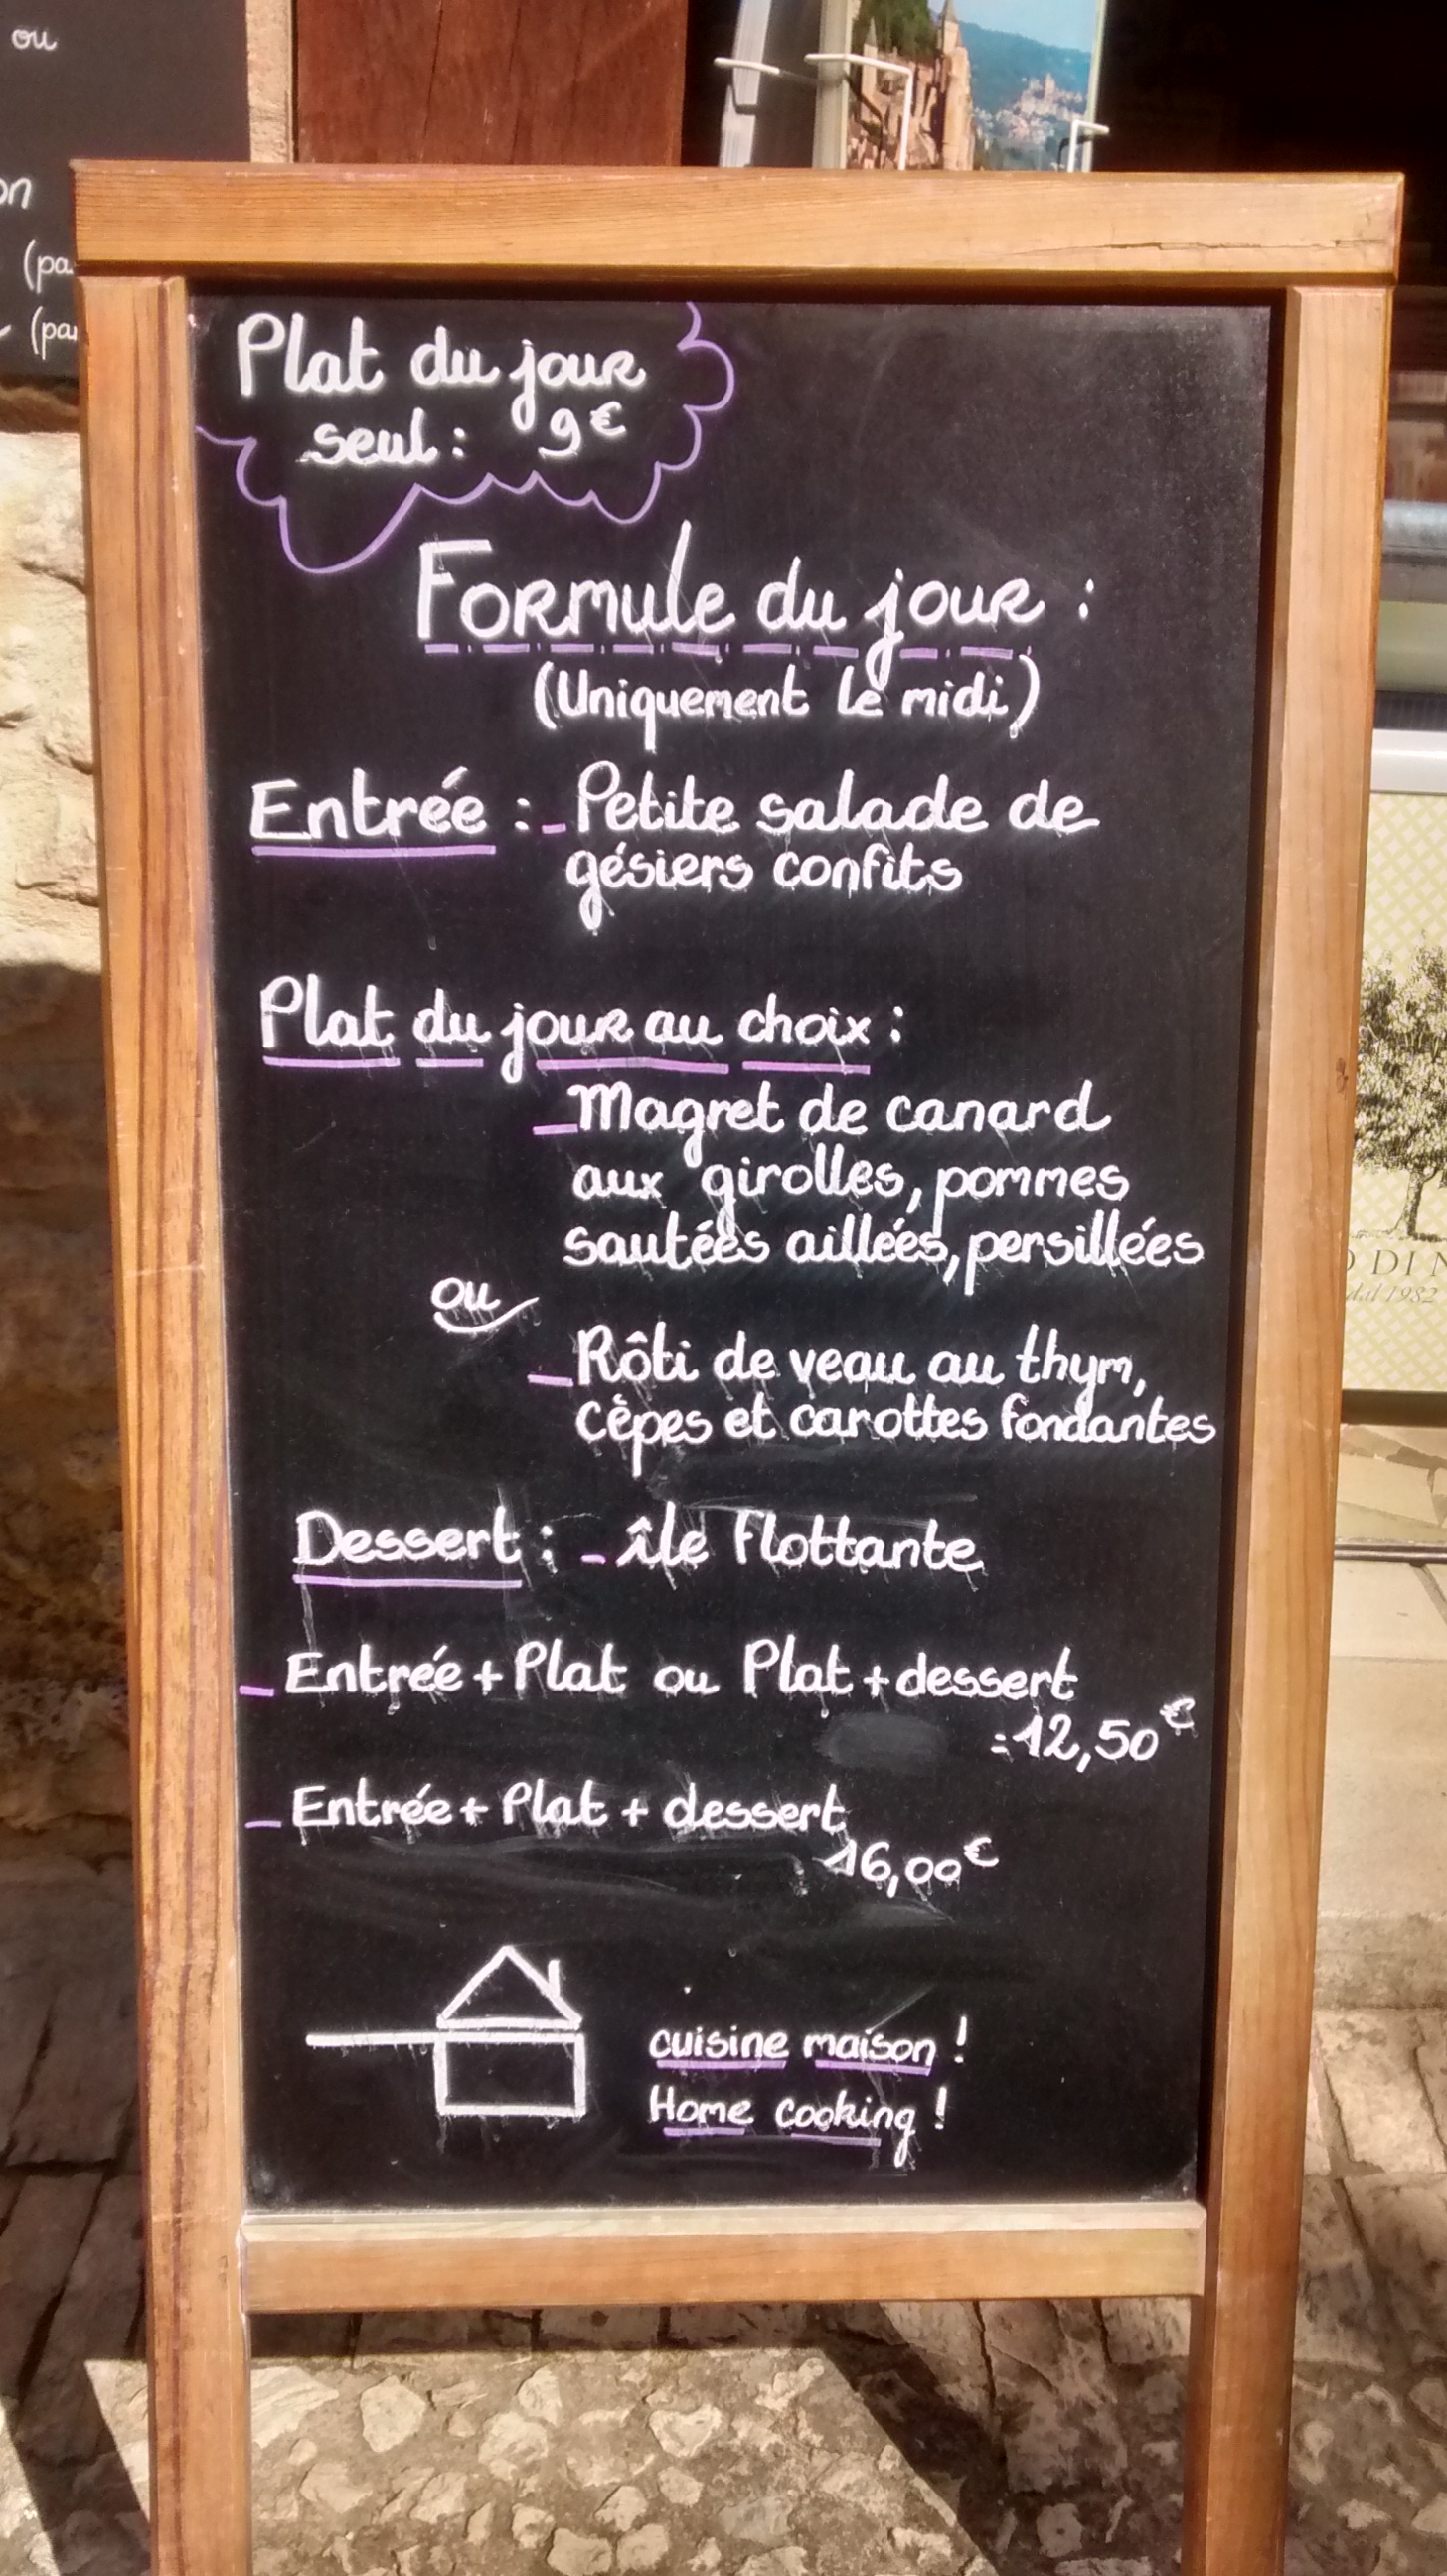 ou
(pa
(par
Plat du jour
seul : 9€
Formule du jour :
(Uniquement le midi)
Entrée : - Petite salade de
gésiers confits
Plat du jour au choix :
- Magret de canard
aux girolles, pommes
sautées aillées, persillées
ou
- Rôti de veau au thym,
cèpes et carottes fondantes
Dessert : - île flottante
- Entrée + Plat ou Plat + dessert
= 12,50€
- Entrée + Plat + dessert
16,00€
cuisine maison !
Home cooking !
DI N
dal 1982